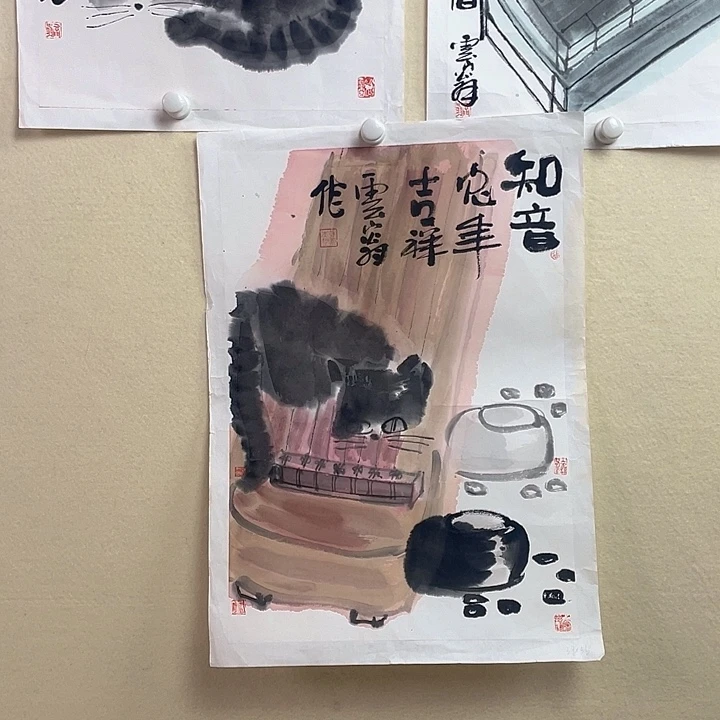 知音
兔年
吉祥
雲翁
作
雲翁